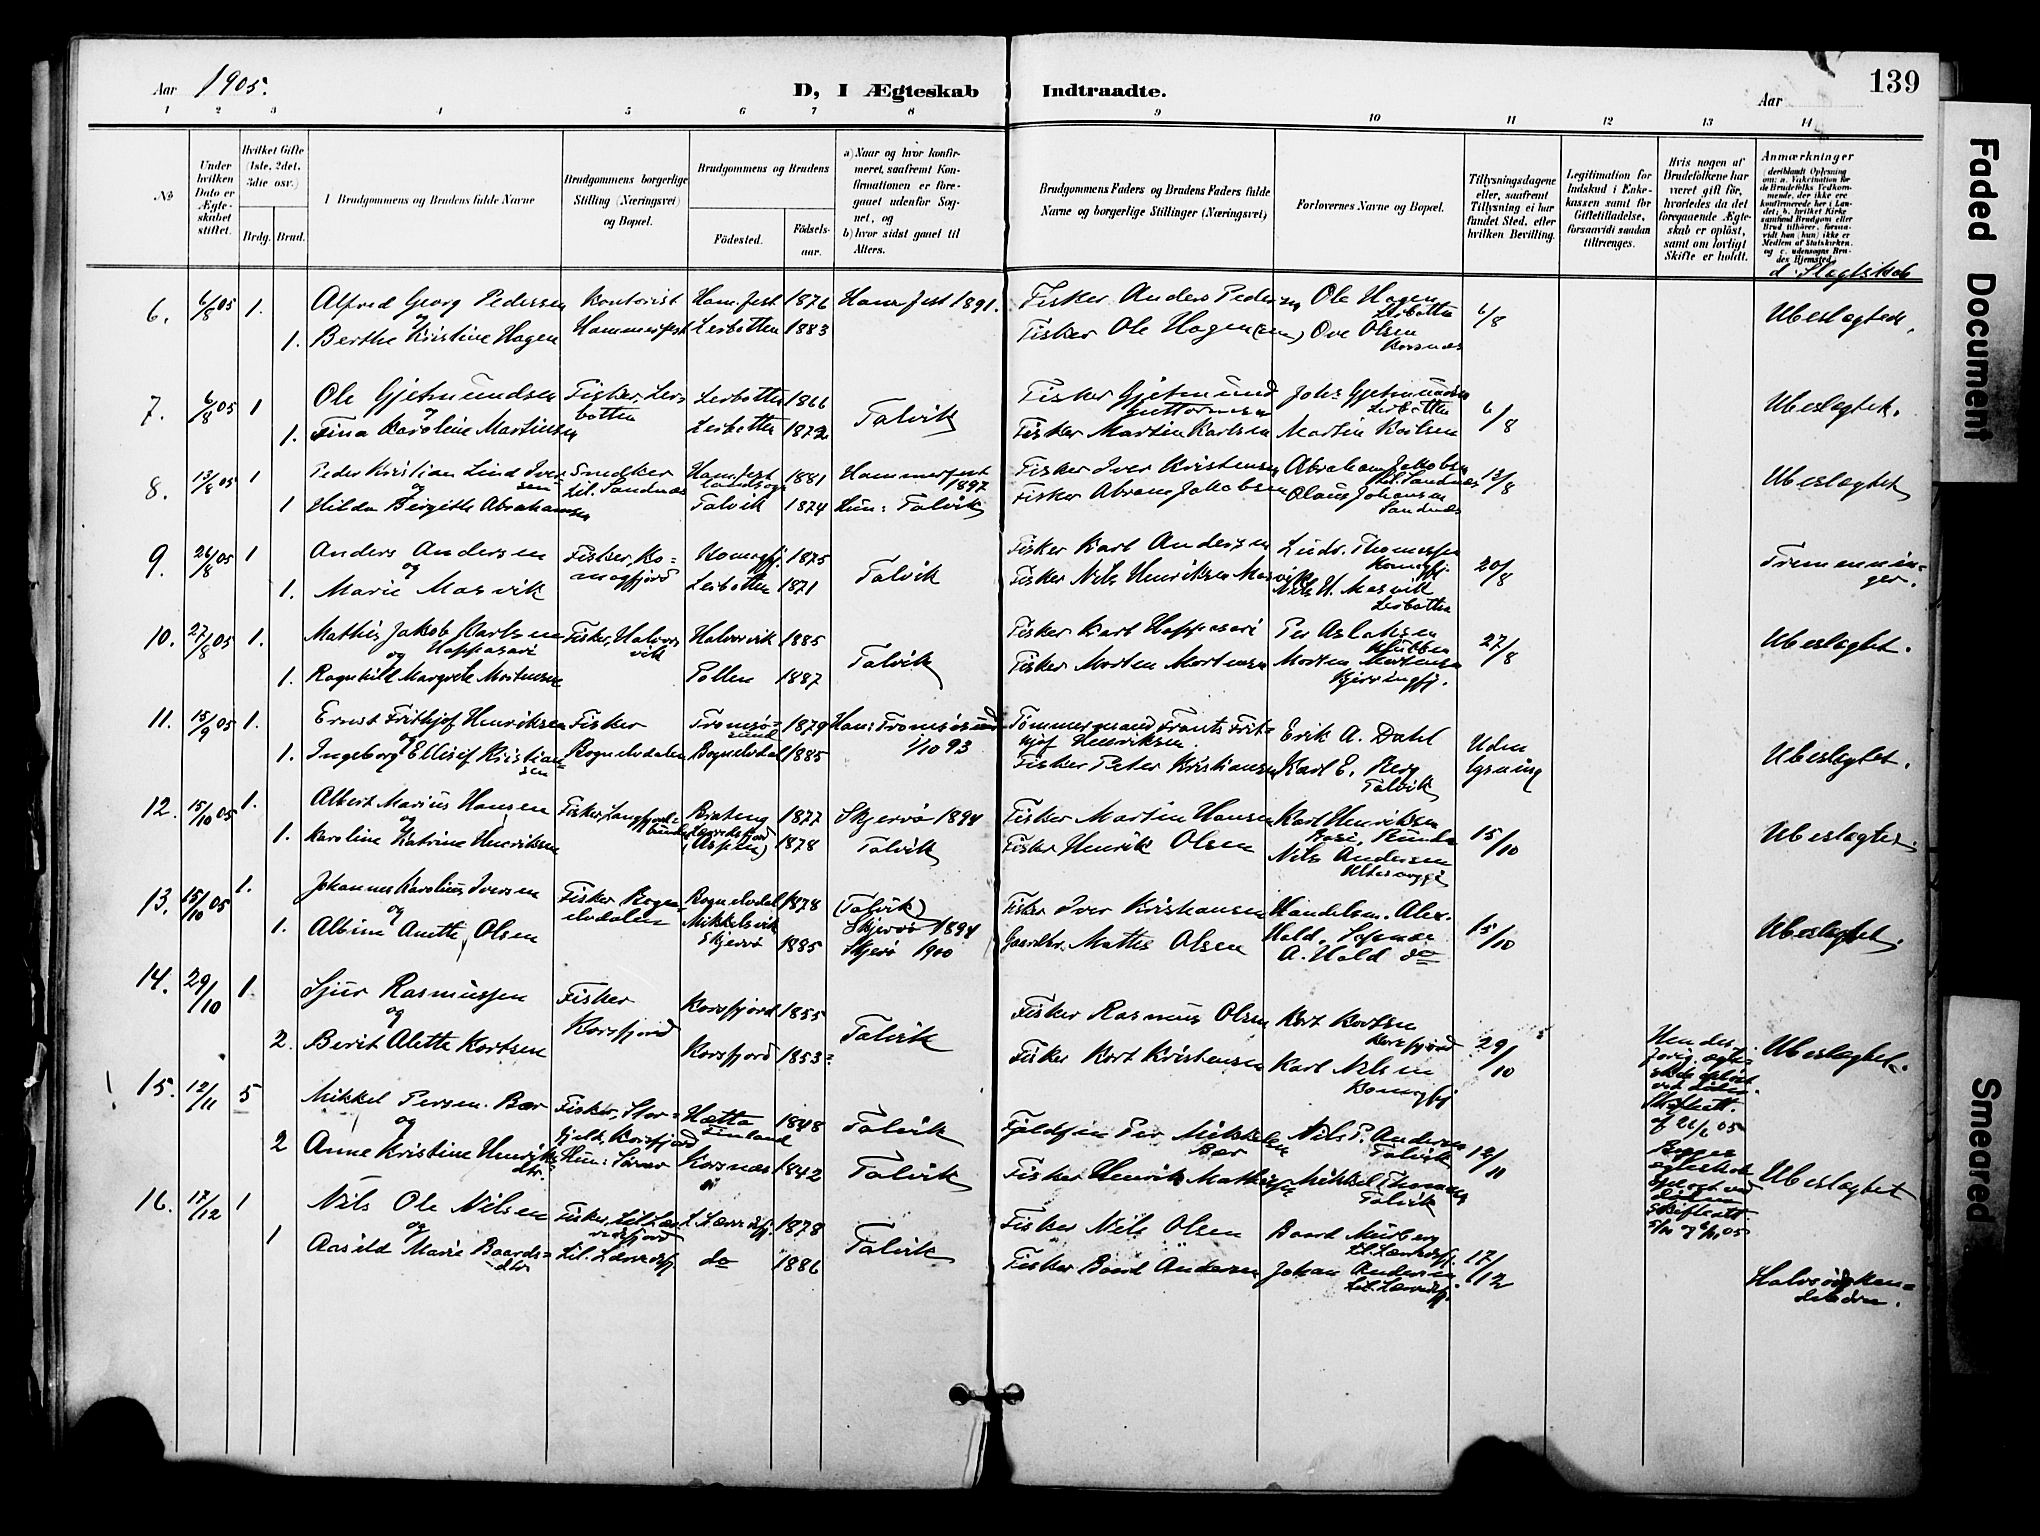 Aar 1905.
D, I Ægteskab Indtraadte.
Aar
139
1 2 3 4 5 6 7 8 9 10 11 12 13 14
No
Under hvilken Dato er Ægteskabet stiftet.
Hvilket Gifte (1ste, 2det, 3die osv.)
Brdg. Brud.
Brudgommens og Brudens fulde Navne
Brudgommens borgerlige Stilling (Næringsvei) og Bopæl.
Brudgommens og Brudens
Fødested.
Fødsels-aar.
a) Naar og hvor konfirmeret, saafremt Konfirmationen er foregaaet udenfor Sognet, og
b) hvor sidst gaaet til Alters.
Brudgommens Faders og Brudens Faders fulde Navne og borgerlige Stillinger (Næringsvei)
Forlovernes Navne og Bopæl.
Tillysningsdagene eller, saafremt Tillysning ei har fundet Sted, efter hvilken Bevilling.
Legitimation for Indskud i Enkekassen samt for Giftetilladelse, forsaavidt saadan tiltrænges.
Hvis nogen af Brudefolkene har været gift før, hvorledes da det foregaaende Ægteskab er opløst, samt om lovligt Skifte er holdt.
Anmærkninger
d. Slegtskab
6. 6/8 05 1. Alfred Georg Pedersen Kontorist Ham.fest 1876 Hamr.fest 1891. Fisker Anders Pedersen Ole Hagen Lerbotten 6/8 Ubeslegtede.
og
1. Berthe Kristine Hagen Hammerfest Lerbotten 1883 Fisker Ole Hagen Ove Olsen Korsnes
7. 6/8 05 1 Ole Gjetmundsen Fisker, Lerbotten Lerbotten 1866 Talvik Fisker Gjetmund Guttormsen Johs Gjetmundsen Lerbotten 6/8 Ubeslegtet.
og
1. Fina Karoline Martinsen Lerbotten 1872 Fisker Martin Karlsen Martin Karlsen
8. 13/8 05 1 Peder Kristian Lind Iversen Snedker Lil. Sandnes Ham.fest landsogn 1881 Hammerfest 1897 Fisker Iver Kristensen Abraham Jakobsen Lil. Sandnes 13/8 Ubeslegtet
og
1 Hilda Birgitte Abrahamsen Talvik 1874 Hun: Talvik Fisker Abram Jakobsen Olaus Johansen Sandnes
9. 26/8 05 1 Anders Andersen Fisker, Komagfjord Komagfj. 1875 Talvik Fisker Karl Andersen Ludv. Thomassen Komagfj. 20/8 Tremenninger.
og
1. Marie Masvik Lerbotten 1871 Fisker Nils Henriksen Masvik Nils H. Masvik Lerbotten
10. 27/8 05 1. Mathis Jakob Karlsen Happasari Fisker, Halvorsvik Halvorsvik 1885 Talvik Fisker Karl Happasari Per Aslaksen Klubben 27/8 Ubeslegtet.
og
1. Ragnhild Margrete Mortensen Pollen 1887 Fisker Morten Mortensen Morten Mortensen Kjerringfj.
11. 15/9 05 1. Ernst Frithjof Henriksen Fisker Tromsøsund 1879 Han: Tromsøsund 1/10 93 Tømmermand Frants Frithjof Henriksen Erik A. Dahl Uden lysning Ubeslegtet.
og
1. Ingeborg Ellisef Kristiansen Bognelvdalen Bognelvdal 1885 Fisker Peter Kristiansen Karl E. Berg Talvik
12. 15/10 05 1. Albert Marius Hansen Fisker, Langfjordbunden 1877 Skjervø 1894 Fisker Martin Hansen Karl Henriksen 15/10 Ubeslegtet.
og
1. Karoline Katrine Henriksen (Aspen) 1878 Talvik Fisker Henrik Olsen Nils Andersen
13. 15/10 05 1. Johannes Karolius Iversen Fisker Bognelvdalen Bognelvdal 1878 (Talvik) Skjervø 1894 Fisker Iver Kristiansen Handelsm. Alex. Hald, 15/10 Ubeslegtet.
og
1. Albine Anette Olsen Mikkelsvik Skjervø 1885 Skjervø 1900 Gaardbr. Mathis Olsen A. Hald do
14. 29/10 1. Sjur Rasmussen Fisker Korsfjord Korsfjord 1855 Talvik Fisker Rasmus Olsen Kort Kortsen Korsfjord 29/10 Ubeslegtet.
og
2. Berit Alette Kortsen Korsfjord 1853 Fisker Kort Kristensen Karl Nilsen Komagfj
15. 12/11 5 Mikkel Persen Bær Fisker, Storfjeld, Korsfjord Hætta Finland 1848 Talvik Fjeldfin Per Mikkelsen Bær Nils P. Andersen Talvik 12/11 Ubeslegtet
og
2 Anne Kristine Henriksdtr. Hun: Korsnes 1842 Talvik Fisker Henrik Mathisen Mikkel Thomassen Talvik
16. 17/12 1 Nils Ole Nilsen Fisker, Lil. Lerresfjord L. Lerresfj. 1878 Talvik Fisker Nils Olsen Baard Murberg Lil. Lerresfj. 17/12 Halvsøskendebørn.
og
1 Aasild Marie Baardsdtr Lil. Lerresfj do 1886 Fisker Baard Andersen Johan Andersen Lil. Lerresfj.
Faded Document
Smeared